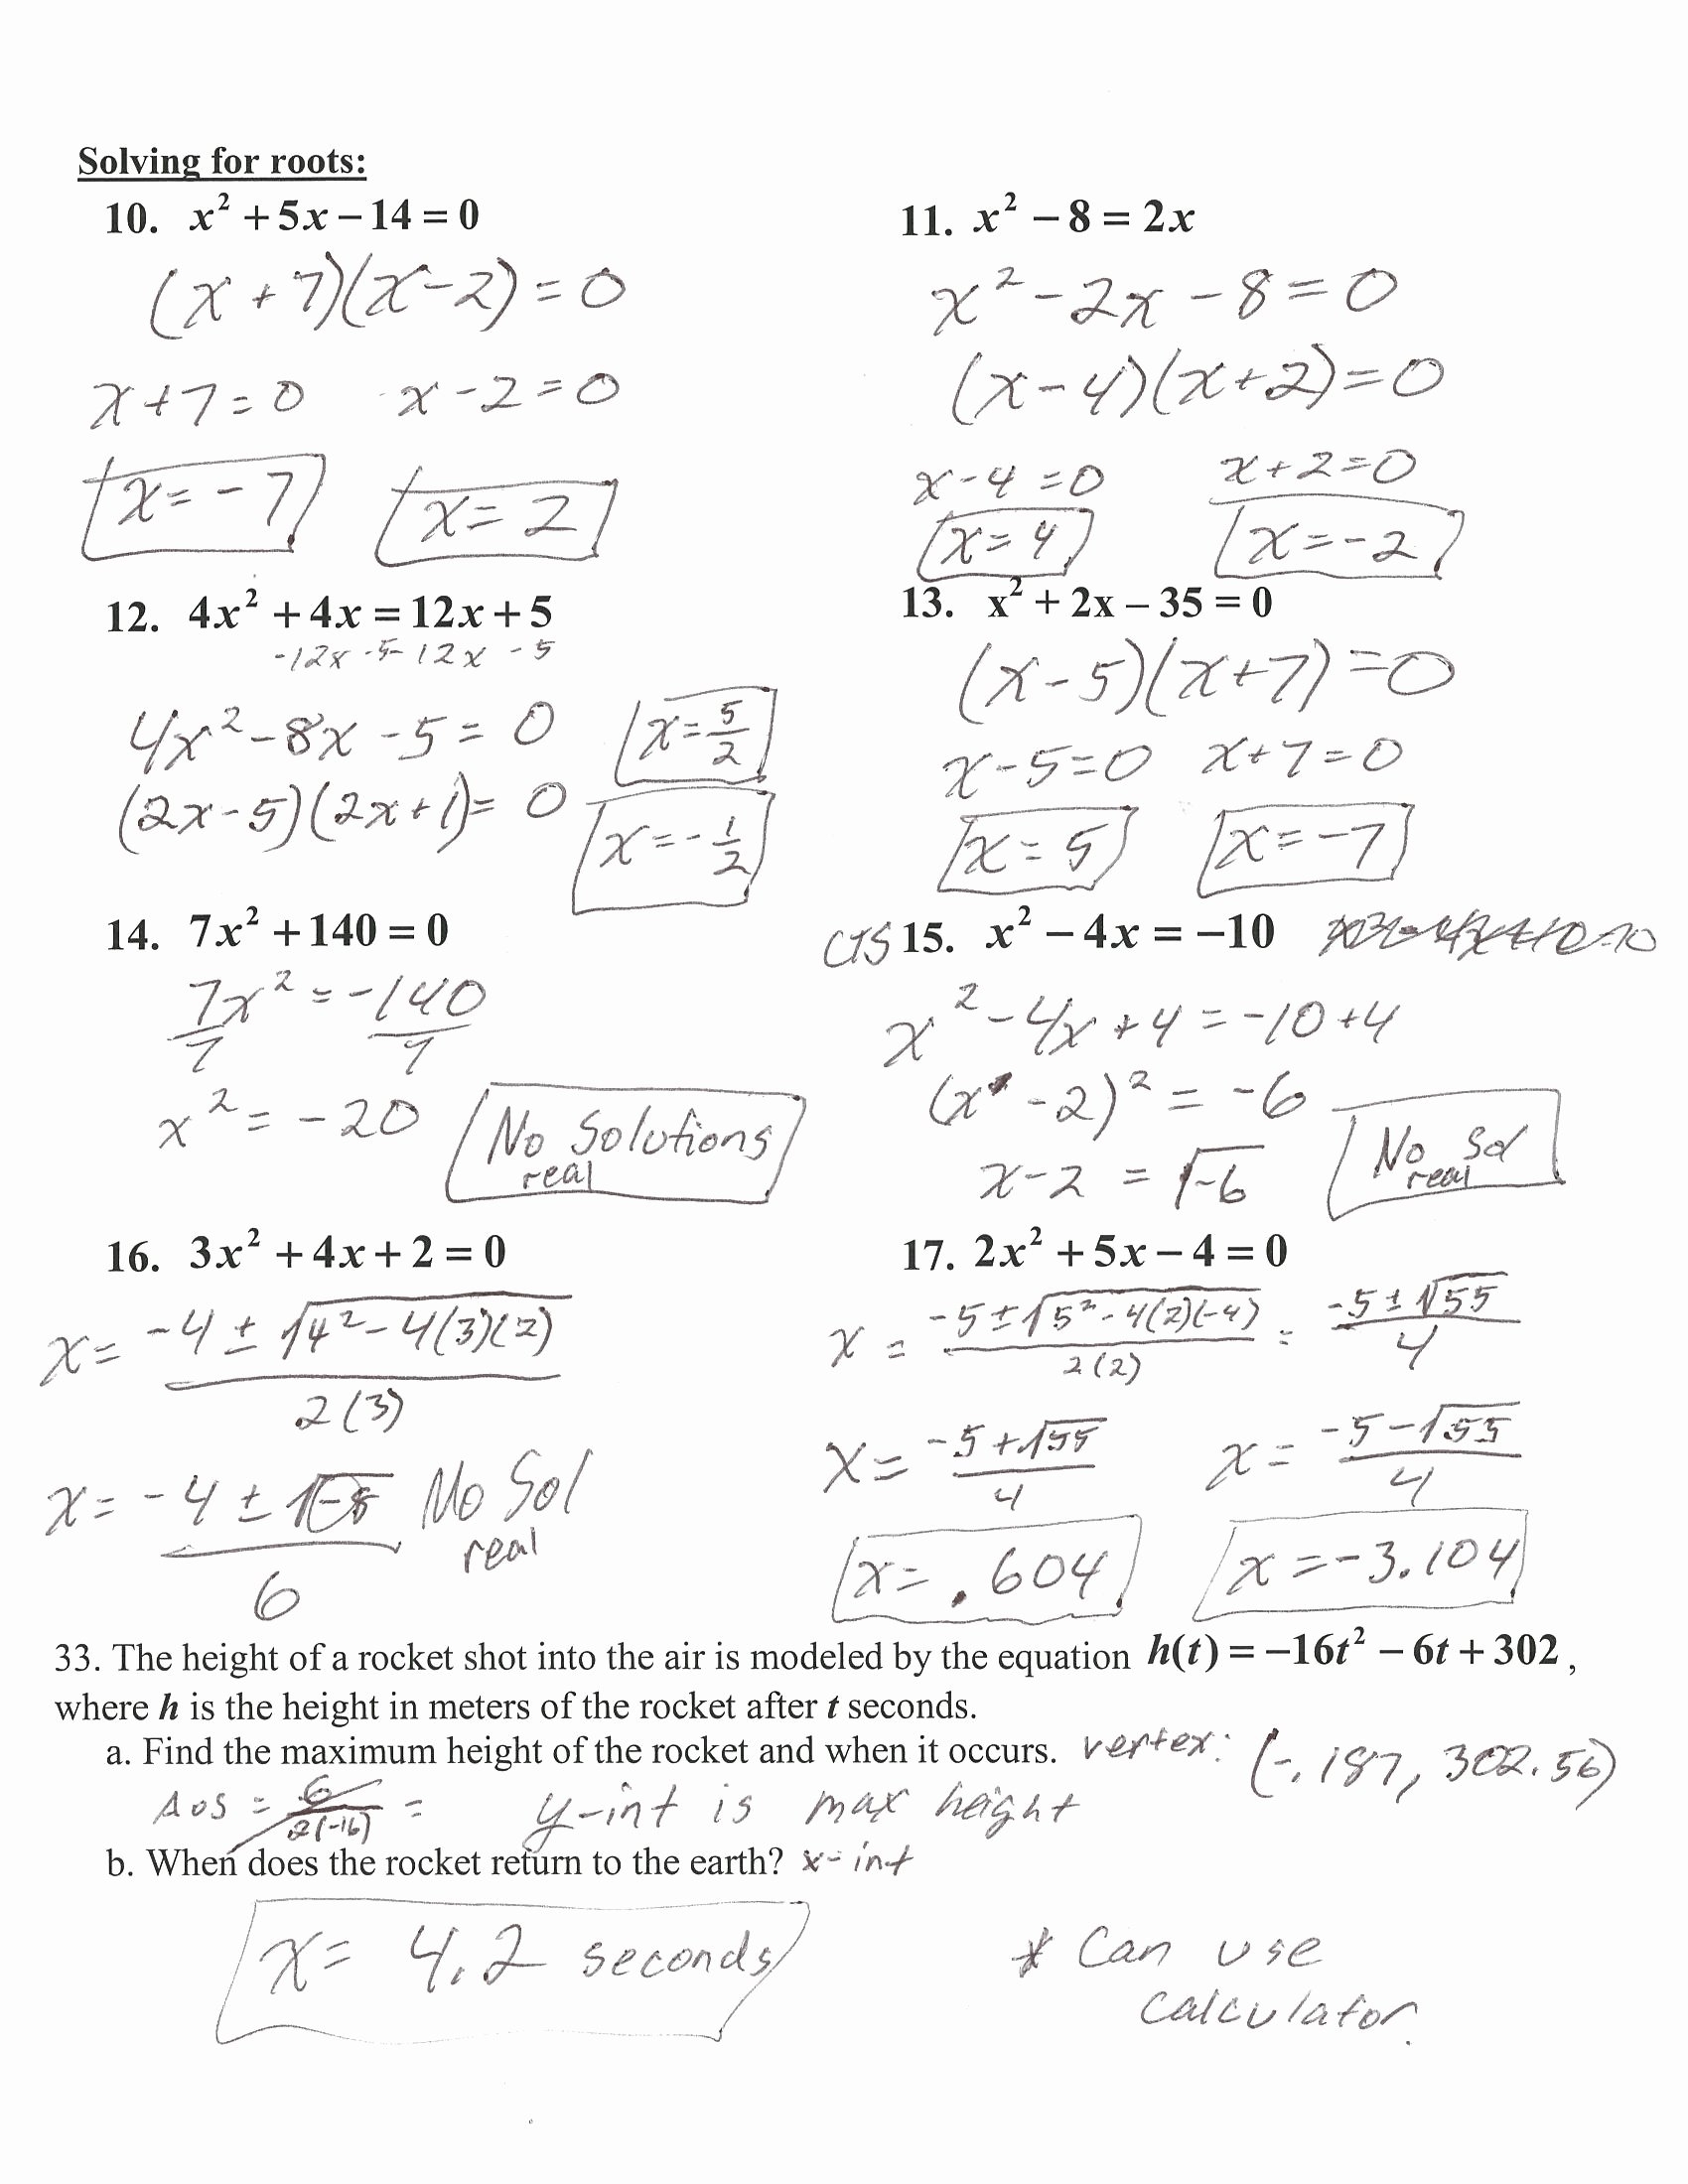 Solving for roots:
10. x² + 5x − 14 = 0
(x + 7)(x − 2) = 0
x + 7 = 0 x − 2 = 0
x = −7 x = 2
11. x² − 8 = 2x
x² − 2x − 8 = 0
(x − 4)(x + 2) = 0
x − 4 = 0 x + 2 = 0
x = 4 x = −2
12. 4x² + 4x = 12x + 5
−12x −5 −12x −5
4x² − 8x − 5 = 0
(2x − 5)(2x + 1) = 0
x = 5/2
x = −1/2
13. x² + 2x − 35 = 0
(x − 5)(x + 7) = 0
x − 5 = 0 x + 7 = 0
x = 5 x = −7
14. 7x² + 140 = 0
7x²/7 = −140/7
x² = −20
No Solutions
real
CTS 15. x² − 4x = −10
x² − 4x + 4 = −10 + 4
(x − 2)² = −6
x − 2 = √−6
No Sol
real
16. 3x² + 4x + 2 = 0
x = (−4 ± √(4² − 4(3)(2)))/2(3)
x = (−4 ± √−8)/6 No Sol
real
17. 2x² + 5x − 4 = 0
x = (−5 ± √(5² − 4(2)(−4)))/2(2) = (−5 ± √55)/4
x = (−5 + √55)/4 x = (−5 − √55)/4
x = .604 x = −3.104
33. The height of a rocket shot into the air is modeled by the equation h(t) = −16t² − 6t + 302,
where h is the height in meters of the rocket after t seconds.
a. Find the maximum height of the rocket and when it occurs. vertex: (−.187, 302.56)
AOS = 6/2(−16) = y-int is max height
b. When does the rocket return to the earth? x-int
x = 4.2 seconds
* Can use
calculator.